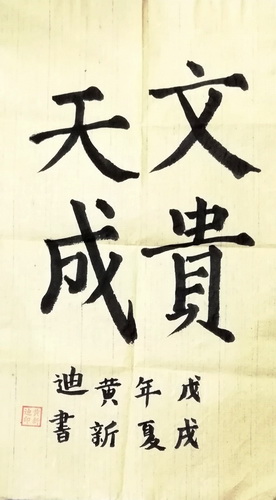 文貴
天成
戊戌
年夏
黄新
迪書